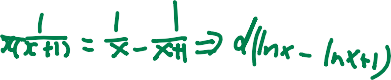 \frac{1}{x(x+1)} = \frac{1}{x} - \frac{1}{x+1} \Rightarrow d(\ln x - \ln x+1)